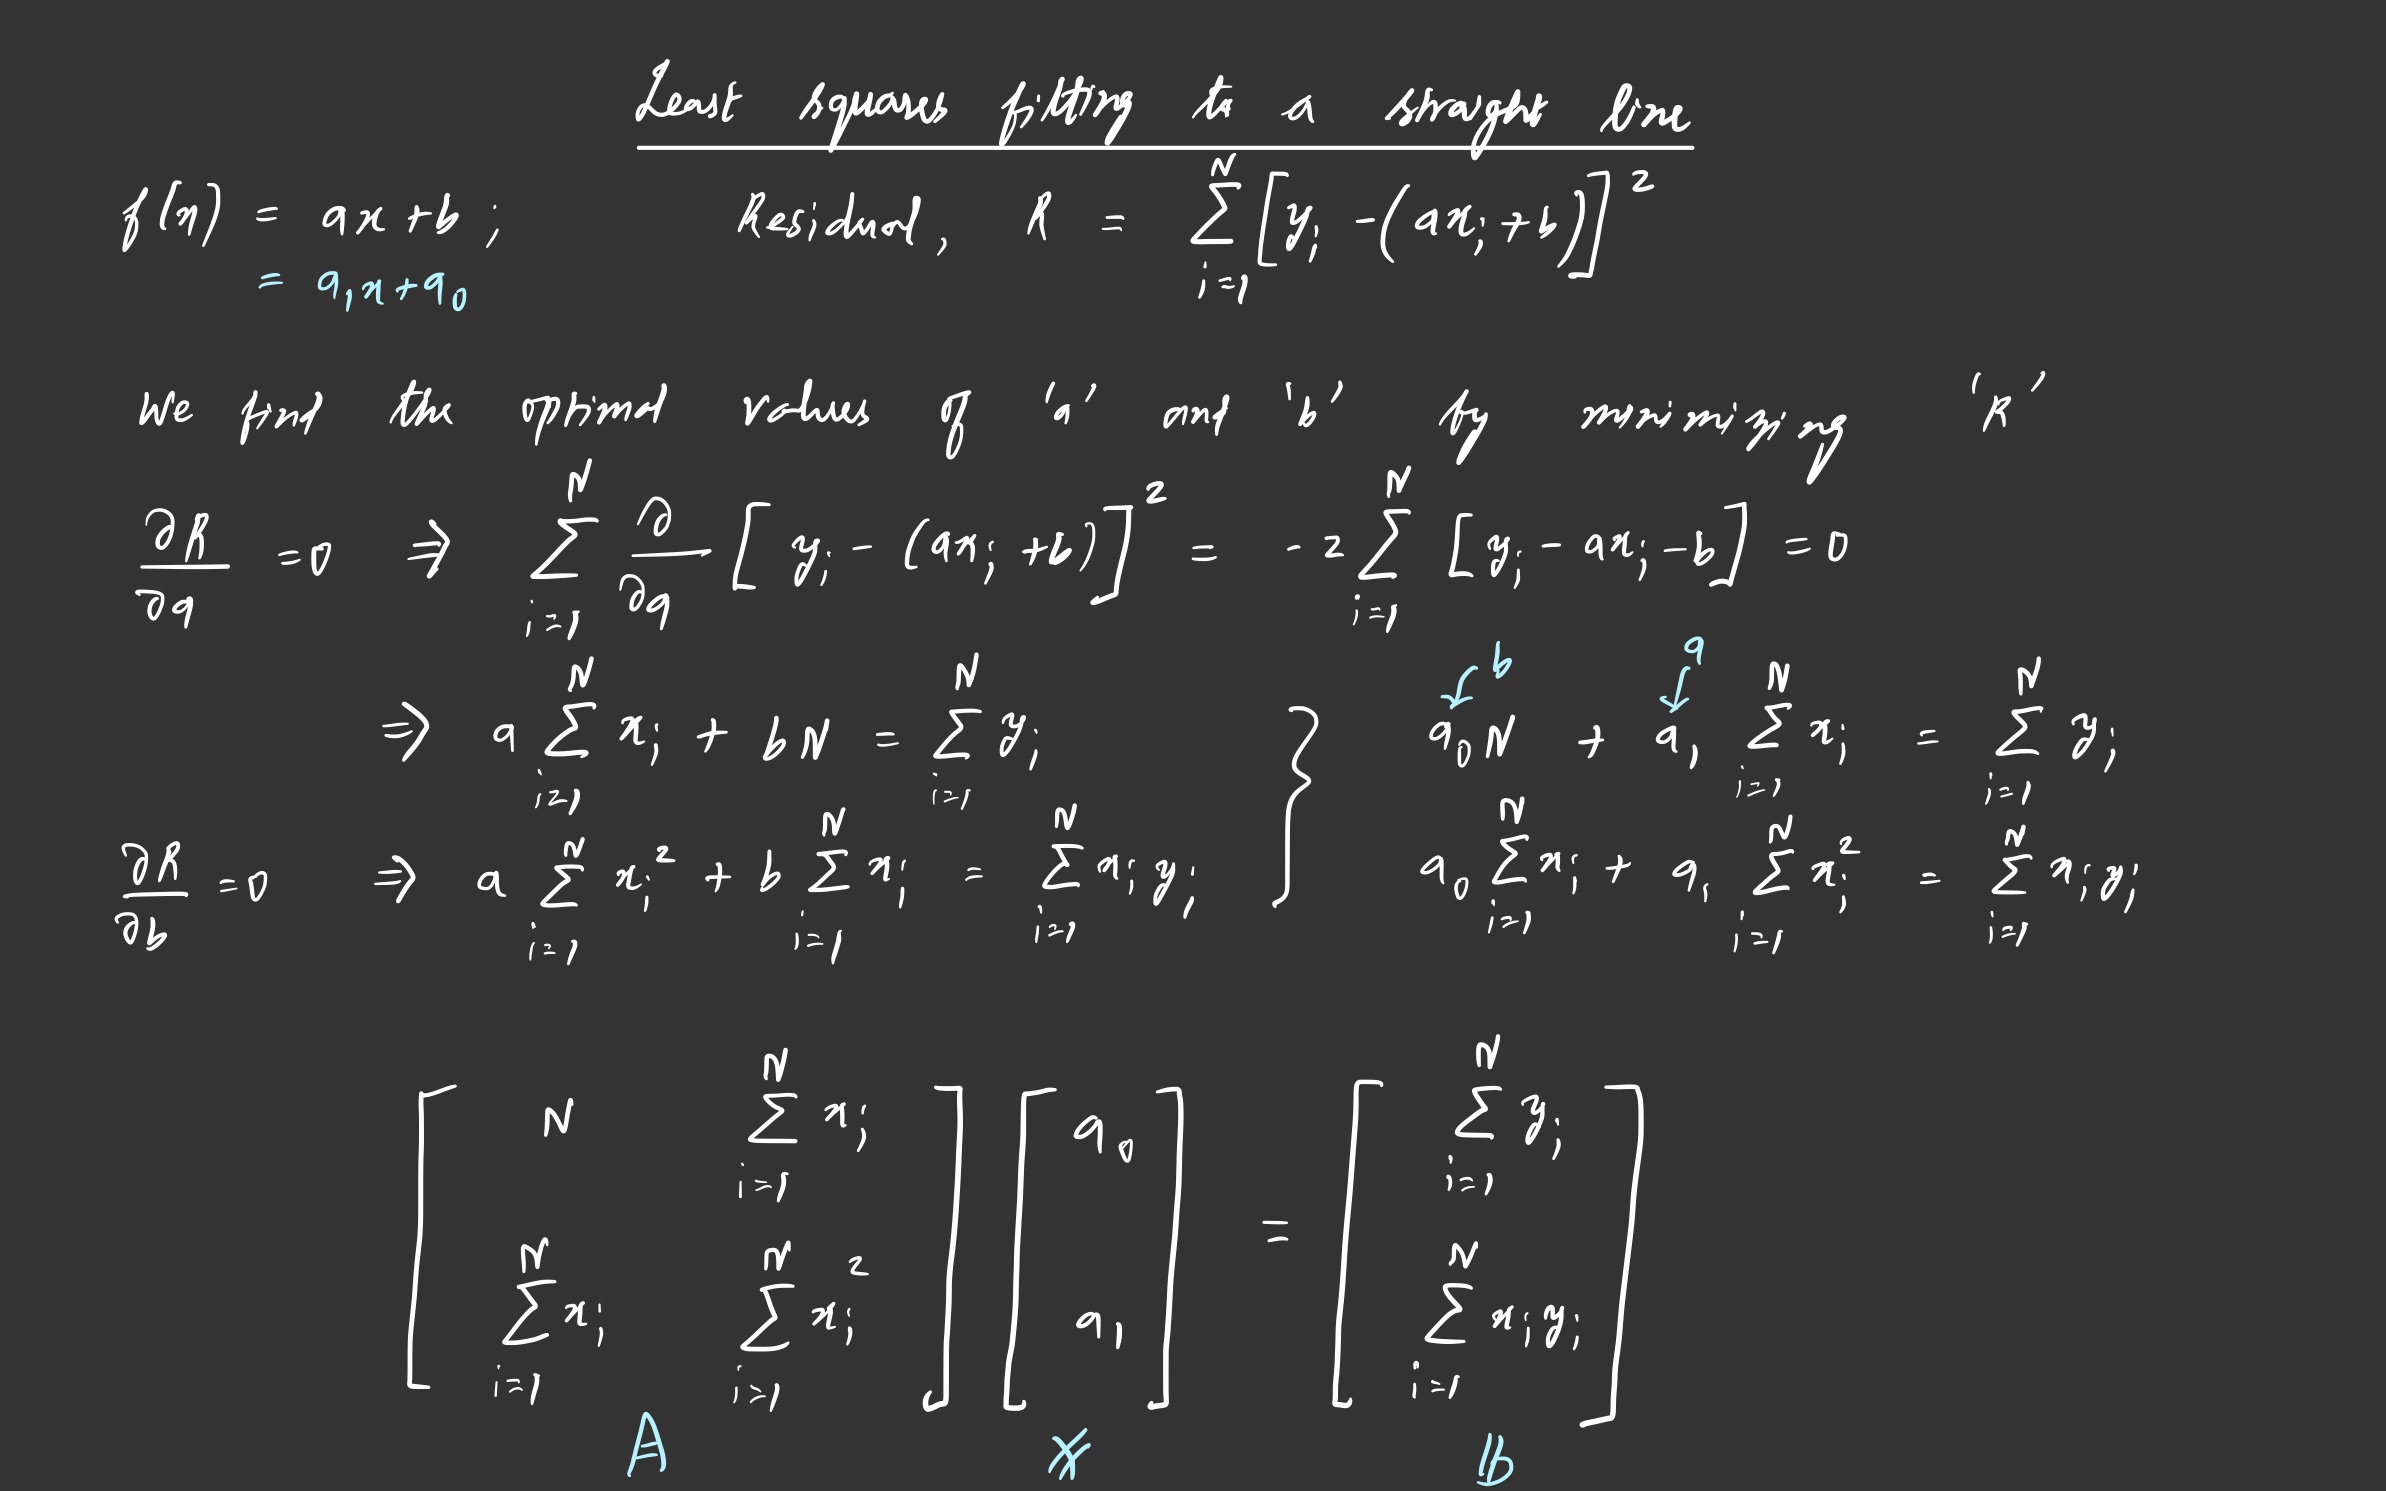 Least squares fitting to a straight line
f(x) = ax + b ; Residual, R = \sum_{i=1}^{N} [y_i - (ax_i + b)]^2
= a_1x + a_0
We find the optimal values of 'a' and 'b' by minimizing 'R'
\frac{∂R}{∂a} = 0 ⇒ \sum_{i=1}^{N} \frac{∂}{∂a} [y_i - (ax_i + b)]^2 = -2 \sum_{i=1}^{N} [y_i - ax_i - b] = 0
b a
⇒ a \sum_{i=1}^{N} x_i + bN = \sum_{i=1}^{N} y_i } a_0 N + a_1 \sum_{i=1}^{N} x_i = \sum_{i=1}^{N} y_i
\frac{∂R}{∂b} = 0 ⇒ a \sum_{i=1}^{N} x_i^2 + b \sum_{i=1}^{N} x_i = \sum_{i=1}^{N} x_i y_i a_0 \sum_{i=1}^{N} x_i + a_1 \sum_{i=1}^{N} x_i^2 = \sum_{i=1}^{N} x_i y_i
[ N \sum_{i=1}^{N} x_i ] [ a_0 ] = [ \sum_{i=1}^{N} y_i ]
[ \sum_{i=1}^{N} x_i \sum_{i=1}^{N} x_i^2 ] [ a_1 ] [ \sum_{i=1}^{N} x_i y_i ]
A x b